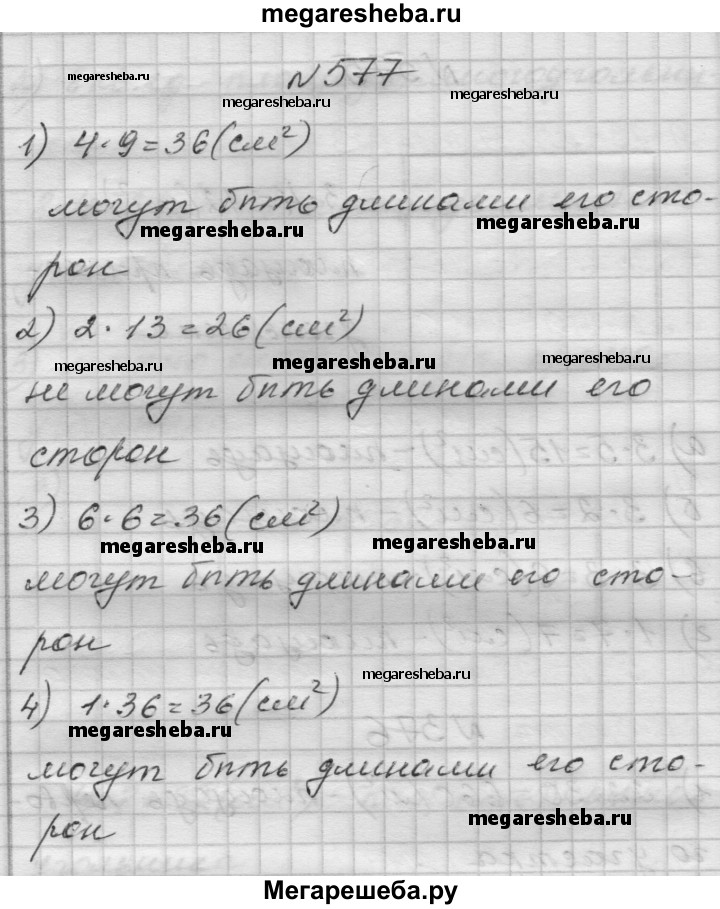 megaresheba.ru
№577
megaresheba.ru
megaresheba.ru
megaresheba.ru
1) 4·9=36(см²)
могут быть длинами его сто-
megaresheba.ru
megaresheba.ru
рон
2) 2·13=26(см²)
megaresheba.ru
megaresheba.ru
megaresheba.ru
не могут быть длинами его
сторон
3) 6·6=36(см²)
megaresheba.ru
megaresheba.ru
могут быть длинами его сто-
рон
megaresheba.ru
4) 1·36=36(см²)
megaresheba.ru
могут быть длинами его сто-
рон
megaresheba.ru
Мегарешеба.ру